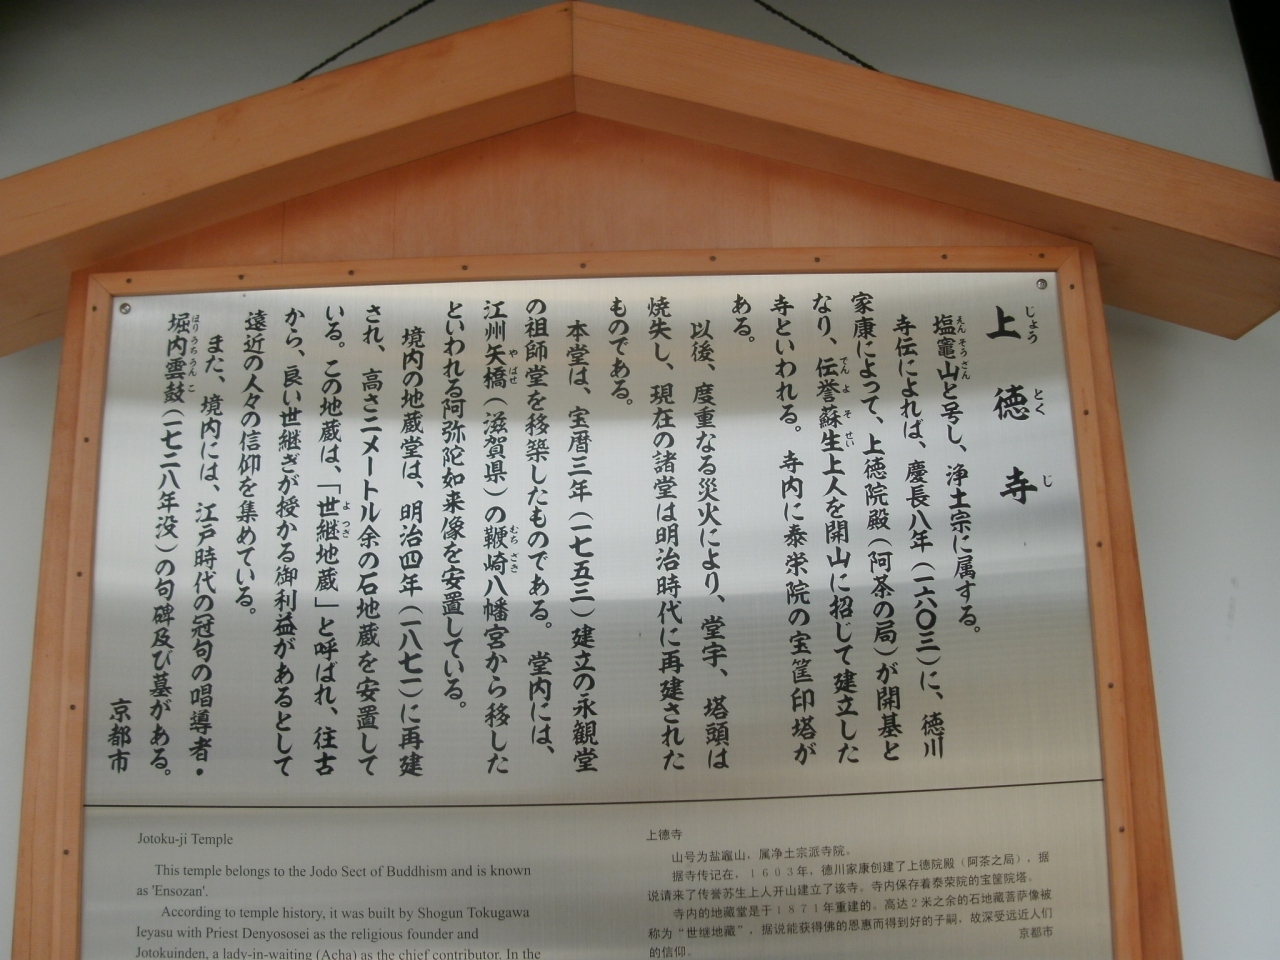 上徳寺
じょうとくじ
塩竈山と号し、浄土宗に属する。
えんそうさん
寺伝によれば、慶長八年（一六〇三）に、徳川
家康によって、上徳院殿（阿茶の局）が開基と
なり、伝誉蘇生上人を開山に招じて建立した
でんよそせい
寺といわれる。寺内に泰栄院の宝筐印塔が
ある。
以後、度重なる災火により、堂宇、塔頭は
焼失し、現在の諸堂は明治時代に再建された
ものである。
本堂は、宝暦三年（一七五三）建立の永観堂
の祖師堂を移築したものである。堂内には、
江州矢橋（滋賀県）の鞭崎八幡宮から移した
やばせ
むちざき
といわれる阿弥陀如来像を安置している。
境内の地蔵堂は、明治四年（一八七一）に再建
され、高さ二メートル余の石地蔵を安置して
いる。この地蔵は、「世継地蔵」と呼ばれ、往古
よつぎ
から、良い世継ぎが授かる御利益があるとして
遠近の人々の信仰を集めている。
また、境内には、江戸時代の冠句の唱導者・
堀内雲鼓（一七二八年没）の句碑及び墓がある。
ほりうちうんこ
京都市
Jotoku-ji Temple
This temple belongs to the Jodo Sect of Buddhism and is known
as 'Ensozan'.
According to temple history, it was built by Shogun Tokugawa
Ieyasu with Priest Denyososei as the religious founder and
Jotokuinden, a lady-in-waiting (Acha) as the chief contributor. In the
上德寺
山号为盐竈山，属净土宗派寺院。
据寺传记在，1603年，德川家康创建了上德院殿（阿茶之局），据
说请来了传誉苏生上人开山建立了该寺。寺内保存着泰荣院的宝筐院塔。
寺内的地藏堂是于1871年重建的。高达2米之余的石地藏菩萨像被
称为“世继地藏”，据说能获得佛的恩惠而得到好的子嗣，故深受远近人们
的信仰。
京都市